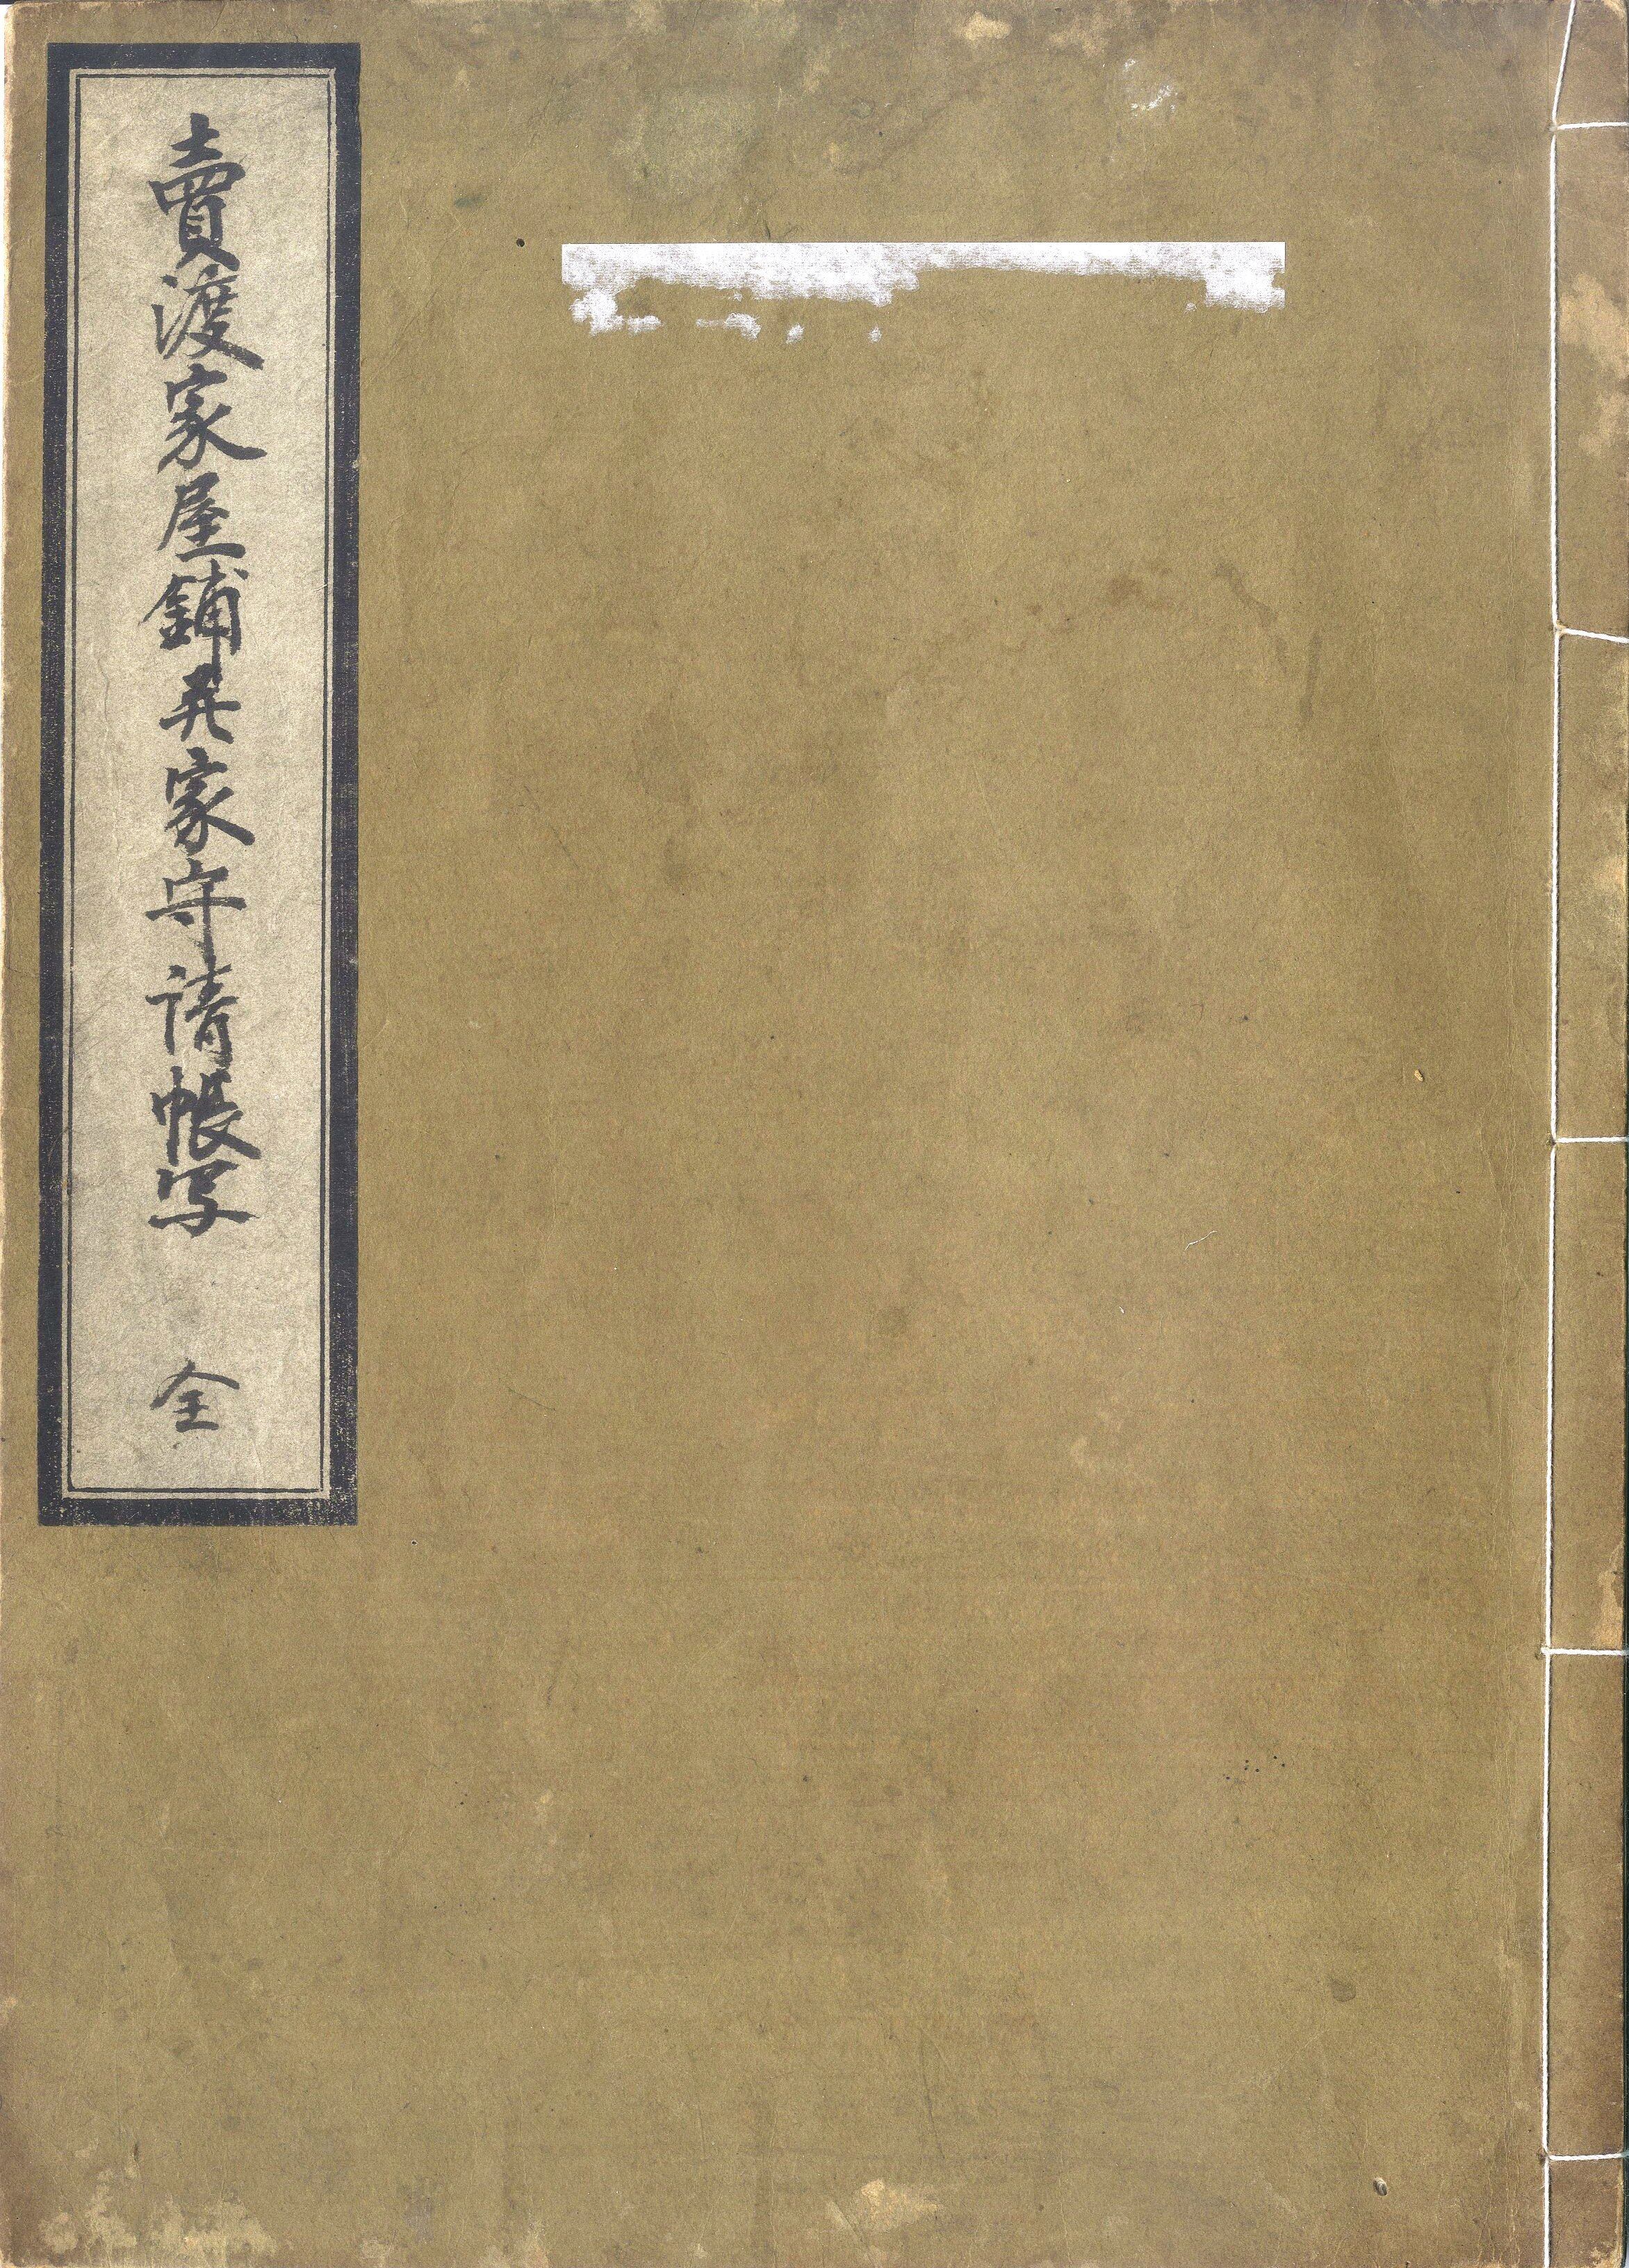 賣渡家屋鋪并家守請帳写 全